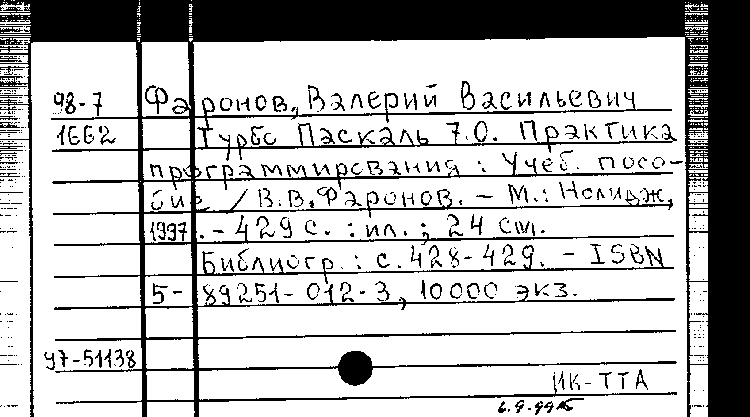 98-7 Фаронов, Валерий Васильевич
1662 Турбо Паскаль 7.0. Практика
программирования : Учеб. посо-
бие / В.В.Фаронов. - М.: Нолидж,
1997. - 429 с. : ил. ; 24 см.
Библиогр.: с. 428-429. - ISBN
5-89251-012-3, 10000 экз.
У7-51138
ИК-ТТА